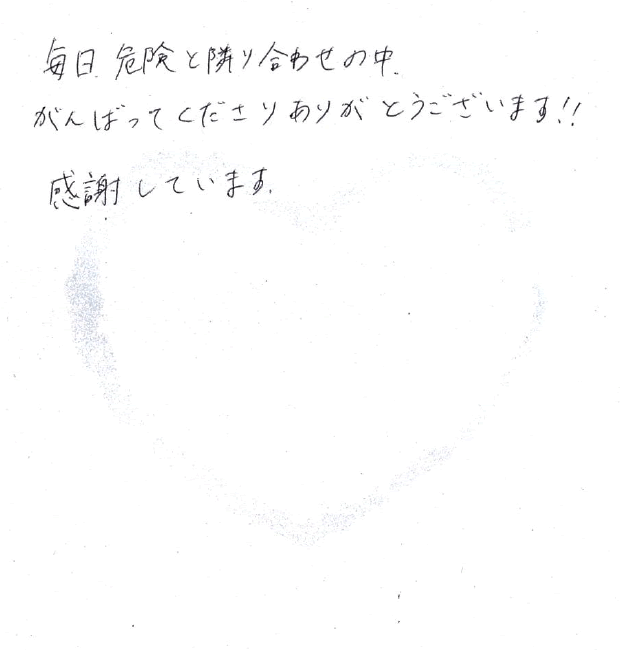 毎日 危険と隣り合わせの中、
がんばってくださりありがとうございます!!
感謝しています。